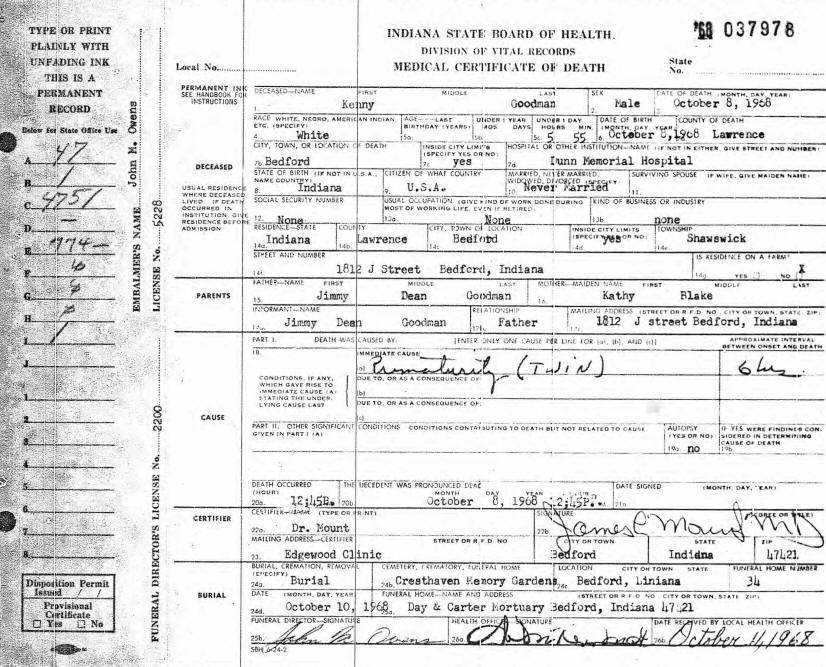 INDIANA STATE BOARD OF HEALTH
DIVISION OF VITAL RECORDS
MEDICAL CERTIFICATE OF DEATH
'68 037978
Local No.
State No.
TYPE OR PRINT
PLAINLY WITH
UNFADING INK
THIS IS A
PERMANENT
RECORD
Below for State Office Use
A 47
B 1
C 4751
D —
E 774—
F 6
G 8
H
I 1
J
1
2
3
4
5
6
7
8
Disposition Permit
Issued / /
Provisional
Certificate
☐ Yes ☐ No
EMBALMER'S NAME John M. Owens
LICENSE No. 5228
FUNERAL DIRECTOR'S LICENSE No. 2200
PERMANENT INK
SEE HANDBOOK FOR
INSTRUCTIONS
DECEASED—NAME FIRST MIDDLE LAST SEX DATE OF DEATH (MONTH, DAY, YEAR)
1. Kenny Goodman 2. Male 3. October 8, 1968
RACE WHITE, NEGRO, AMERICAN INDIAN, ETC. (SPECIFY) AGE—LAST BIRTHDAY (YEARS) UNDER 1 YEAR MOS. DAYS UNDER 1 DAY HOURS MIN DATE OF BIRTH (MONTH, DAY, YEAR) COUNTY OF DEATH
4. White 5a. 5b. 5c. 5 55 6. October 8, 1968 Lawrence
DECEASED
CITY, TOWN, OR LOCATION OF DEATH INSIDE CITY LIMITS (SPECIFY YES OR NO) HOSPITAL OR OTHER INSTITUTION—NAME (IF NOT IN EITHER, GIVE STREET AND NUMBER)
7b. Bedford 7c. yes 7d. Dunn Memorial Hospital
USUAL RESIDENCE
WHERE DECEASED
LIVED. IF DEATH
OCCURRED IN
INSTITUTION, GIVE
RESIDENCE BEFORE
ADMISSION
STATE OF BIRTH (IF NOT IN U.S.A., NAME COUNTRY) CITIZEN OF WHAT COUNTRY MARRIED, NEVER MARRIED, WIDOWED, DIVORCED (SPECIFY) SURVIVING SPOUSE IF WIFE, GIVE MAIDEN NAME)
8. Indiana 9. U.S.A. 10. Never Married 11.
SOCIAL SECURITY NUMBER USUAL OCCUPATION (GIVE KIND OF WORK DONE DURING MOST OF WORKING LIFE, EVEN IF RETIRED) KIND OF BUSINESS OR INDUSTRY
12. None 13a. None 13b. none
RESIDENCE—STATE COUNTY CITY, TOWN OR LOCATION INSIDE CITY LIMITS (SPECIFY YES OR NO) TOWNSHIP
14a. Indiana 14b. Lawrence 14c. Bedford 14d. yes 14e. Shawswick
STREET AND NUMBER IS RESIDENCE ON A FARM?
14f. 1812 J Street Bedford, Indiana 14g. YES ☐ NO X
PARENTS
FATHER—NAME FIRST MIDDLE LAST MOTHER—MAIDEN NAME FIRST MIDDLE LAST
15. Jimmy Dean Goodman 16. Kathy Blake
INFORMANT—NAME RELATIONSHIP MAILING ADDRESS (STREET OR R.F.D. NO., CITY OR TOWN, STATE, ZIP)
17a. Jimmy Dean Goodman 17b. Father 17c. 1812 J street Bedford, Indiana
PART I. DEATH WAS CAUSED BY: [ENTER ONLY ONE CAUSE PER LINE FOR (a), (b), AND (c)] APPROXIMATE INTERVAL BETWEEN ONSET AND DEATH
18. IMMEDIATE CAUSE
(a) Prematurity (TWIN) 6 hrs
CONDITIONS, IF ANY,
WHICH GAVE RISE TO
IMMEDIATE CAUSE (A)
STATING THE UNDER-
LYING CAUSE LAST
DUE TO, OR AS A CONSEQUENCE OF:
(b)
DUE TO, OR AS A CONSEQUENCE OF:
(c)
CAUSE
PART II. OTHER SIGNIFICANT CONDITIONS CONDITIONS CONTRIBUTING TO DEATH BUT NOT RELATED TO CAUSE GIVEN IN PART I (A) AUTOPSY (YES OR NO) IF YES WERE FINDINGS CONSIDERED IN DETERMINING CAUSE OF DEATH
19a. no 19b.
DEATH OCCURRED (HOUR) THE DECEDENT WAS PRONOUNCED DEAD MONTH DAY YEAR HOUR DATE SIGNED (MONTH, DAY, YEAR)
20a. 12;45P. 20b. October 8, 1968 12;45P. M. 21a.
CERTIFIER
CERTIFIER—NAME (TYPE OR PRINT) SIGNATURE (DEGREE OR TITLE)
22a. Dr. Mount 22b. James C Mount MD
MAILING ADDRESS—CERTIFIER STREET OR R.F.D. NO CITY OR TOWN STATE ZIP
23. Edgewood Clinic Bedford Indiana 47421
BURIAL, CREMATION, REMOVAL (SPECIFY) CEMETERY, CREMATORY, FUNERAL HOME LOCATION CITY OR TOWN STATE FUNERAL HOME NUMBER
24a. Burial 24b. Cresthaven Memory Gardens 24c. Bedford, Indiana 34
BURIAL
DATE (MONTH, DAY, YEAR) FUNERAL HOME—NAME AND ADDRESS (STREET OR R.F.D. NO., CITY OR TOWN, STATE, ZIP)
24d. October 10, 1968 25a. Day & Carter Mortuary Bedford, Indiana 47421
FUNERAL DIRECTOR—SIGNATURE HEALTH OFFICER—SIGNATURE DATE RECEIVED BY LOCAL HEALTH OFFICER
25b. John M Owens 26a. 26b. October 11, 1968
SBH 6-24-2